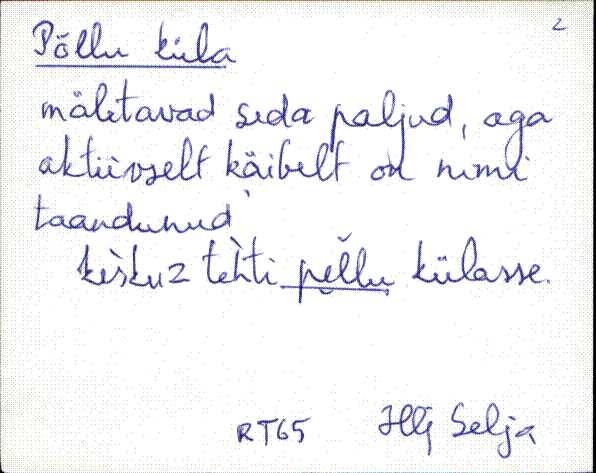 Põllu küla 2
mäletavad seda paljud, aga
aktiivselt käibelt on nimi
taandunud
kèskuz tehti pe͔llu külasse.
RT65 Hlj Selja